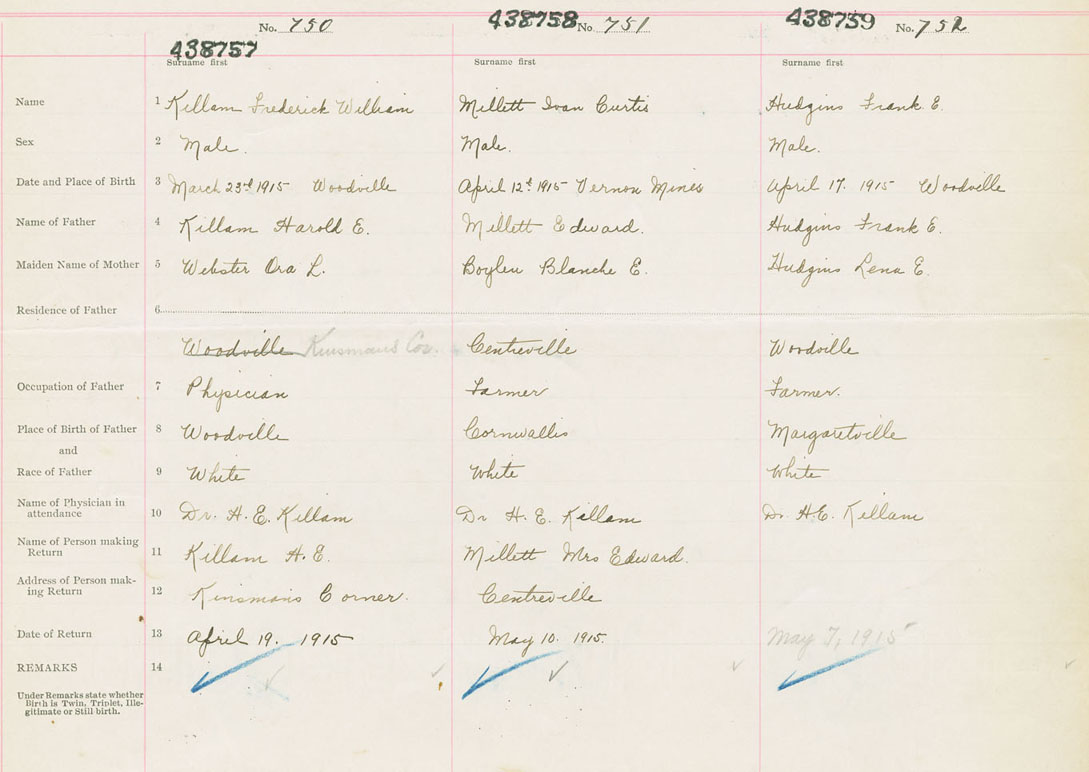 No. 750 438758 No 751 438759 No. 752
438757
Surname first Surname first Surname first
Name 1 Killam Frederick William Millett Ivan Curtis Hudgins Frank E.
Sex 2 Male. Male. Male.
Date and Place of Birth 3 March 23rd 1915 Woodville April 12th 1915 Vernon Mines April 17. 1915 Woodville
Name of Father 4 Killam Harold E. Millett Edward. Hudgins Frank E.
Maiden Name of Mother 5 Webster Ora L. Boylen Blanche E. Hudgins Lena E.
Residence of Father 6
Woodville Kinsmans Cor. Centreville Woodville
Occupation of Father 7 Physician Farmer Farmer.
Place of Birth of Father 8 Woodville Cornwallis Margaretville
and
Race of Father 9 White White White
Name of Physician in
attendance 10 Dr. H. E. Killam Dr H. E. Killam Dr. H.E. Killam
Name of Person making
Return 11 Killam H. E. Millett Mrs Edward.
Address of Person mak-
ing Return 12 Kinsmans Corner. Centreville
Date of Return 13 April 19. 1915 May 10. 1915. May 7, 1915
REMARKS 14
Under Remarks state whether
Birth is Twin, Triplet, Ille-
gitimate or Still-birth.